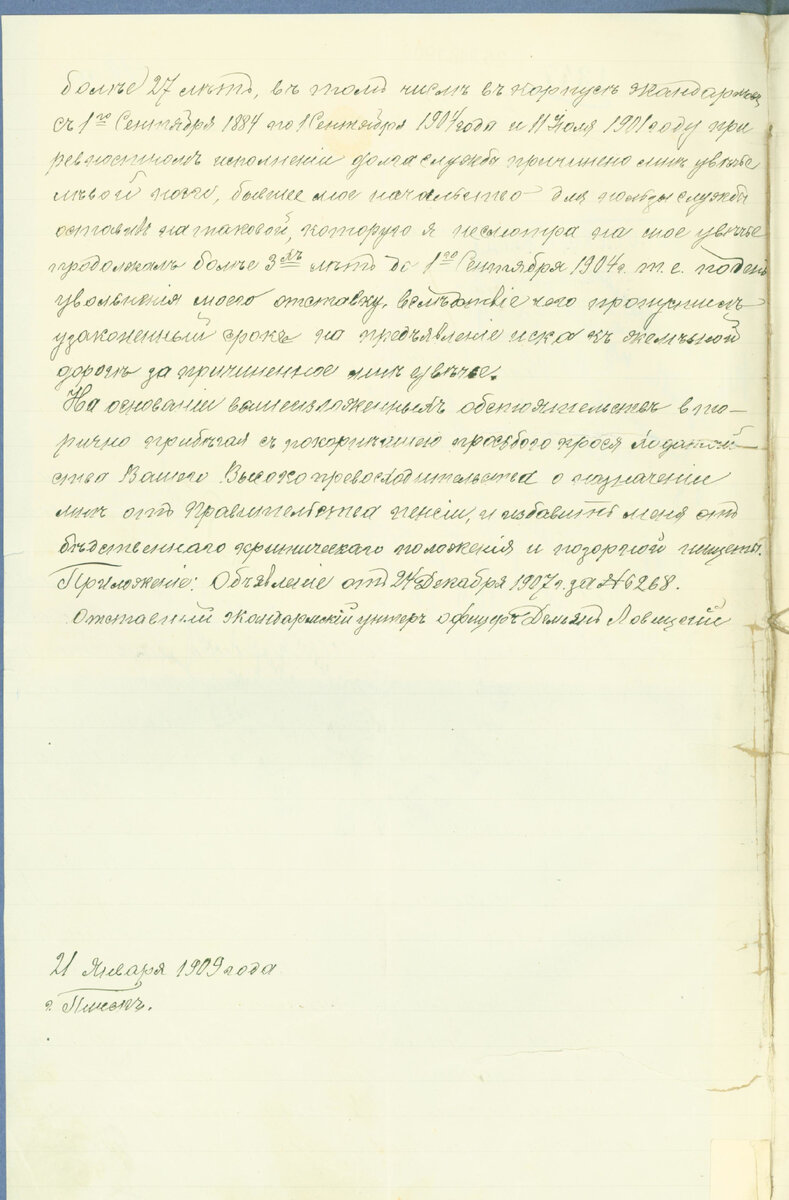 болѣе 27 лѣтъ, въ томъ числѣ въ корпусѣ Жандармовъ
съ 1го Сентября 1884 по 1 Сентября 1904 года и 11 Іюля 1901 году при
ревностномъ исполненіи долга службы причинено мнѣ увѣчье
лѣвой ноги, бывшее мое начальство для пользы службы
оставивъ на таковой, которую я несмотря на мое увѣчье
продолжалъ болѣе 3хъ лѣтъ до 1го Сентября 1904 г. т. е. по день
увольненія моего отставку, вслѣдствіе чего пропустилъ
узаконенный срокъ на предъявленіе иска къ желѣзной
дорогѣ за причиненное мнѣ увѣчье.
На основаніи вышеизложенныхъ обстоятельствъ вто-
рично прибѣгая съ покорнѣйшею просьбою прося ходатай-
ства Вашего Высокопревосходительства о назначеніи
мнѣ отъ Правительства пенсіи, и избавить меня отъ
бѣдственнаго критическаго положенія и позорной нищеты.
Приложеніе: Объявленіе отъ 24 Декабря 1907 г. за № 6268.
Отставной жандармскій унтеръ офицеръ Демьянъ Ловицкій
21 Января 1909 года
г. Пинскъ.